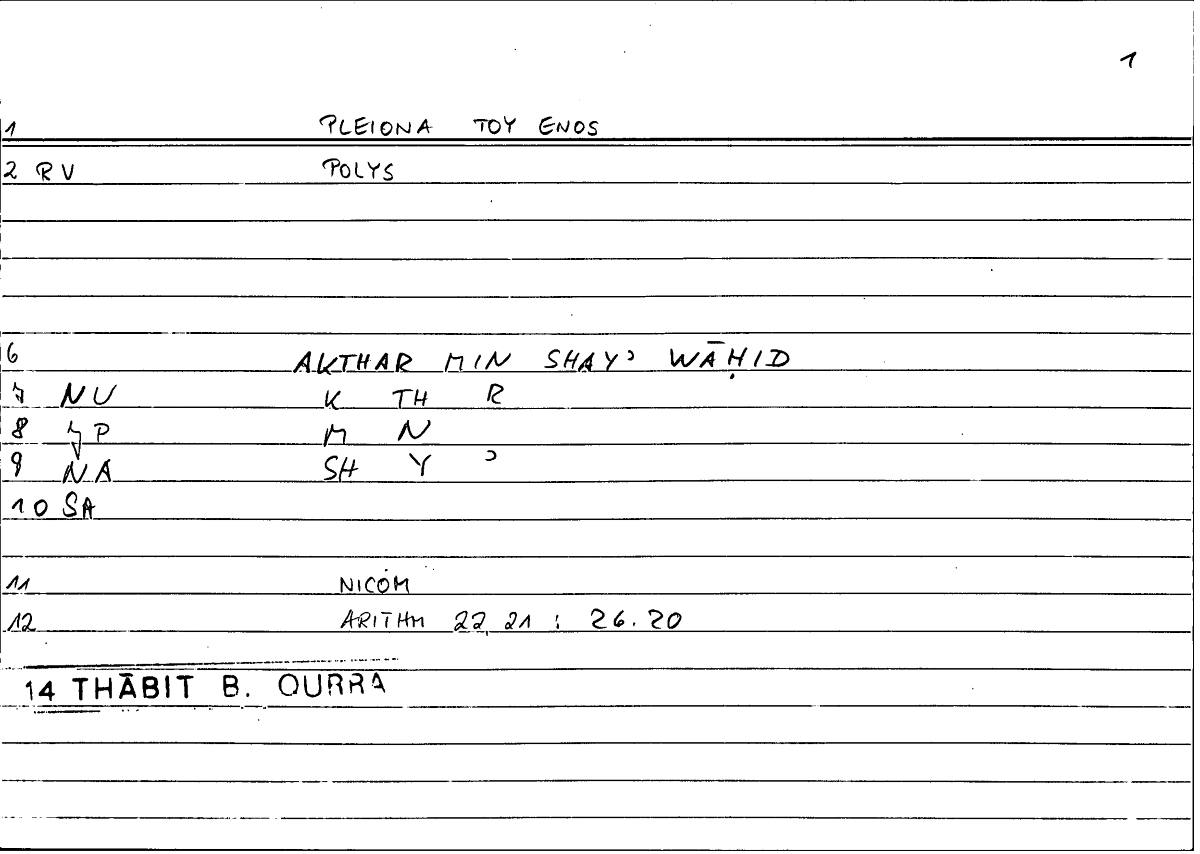 1
1 PLEIONA TOY ENOS
2 RV POLYS
6 AKTHAR MIN SHAYʾ WĀḤID
7 NU K TH R
8 P M N
9 NA SH Y ʾ
10 SA
11 NICOM
12 ARITHM 22,21 : 26.20
14 THĀBIT B. QURRA